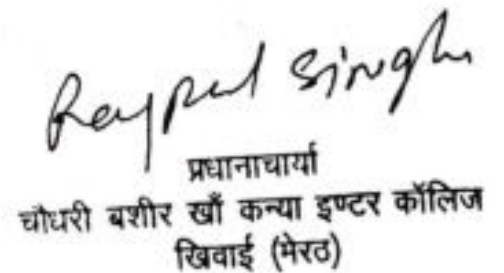 Raypal Singh
प्रधानाचार्या
चौधरी बशीर खाँ कन्या इण्टर कॉलिज
खिवाई (मेरठ)